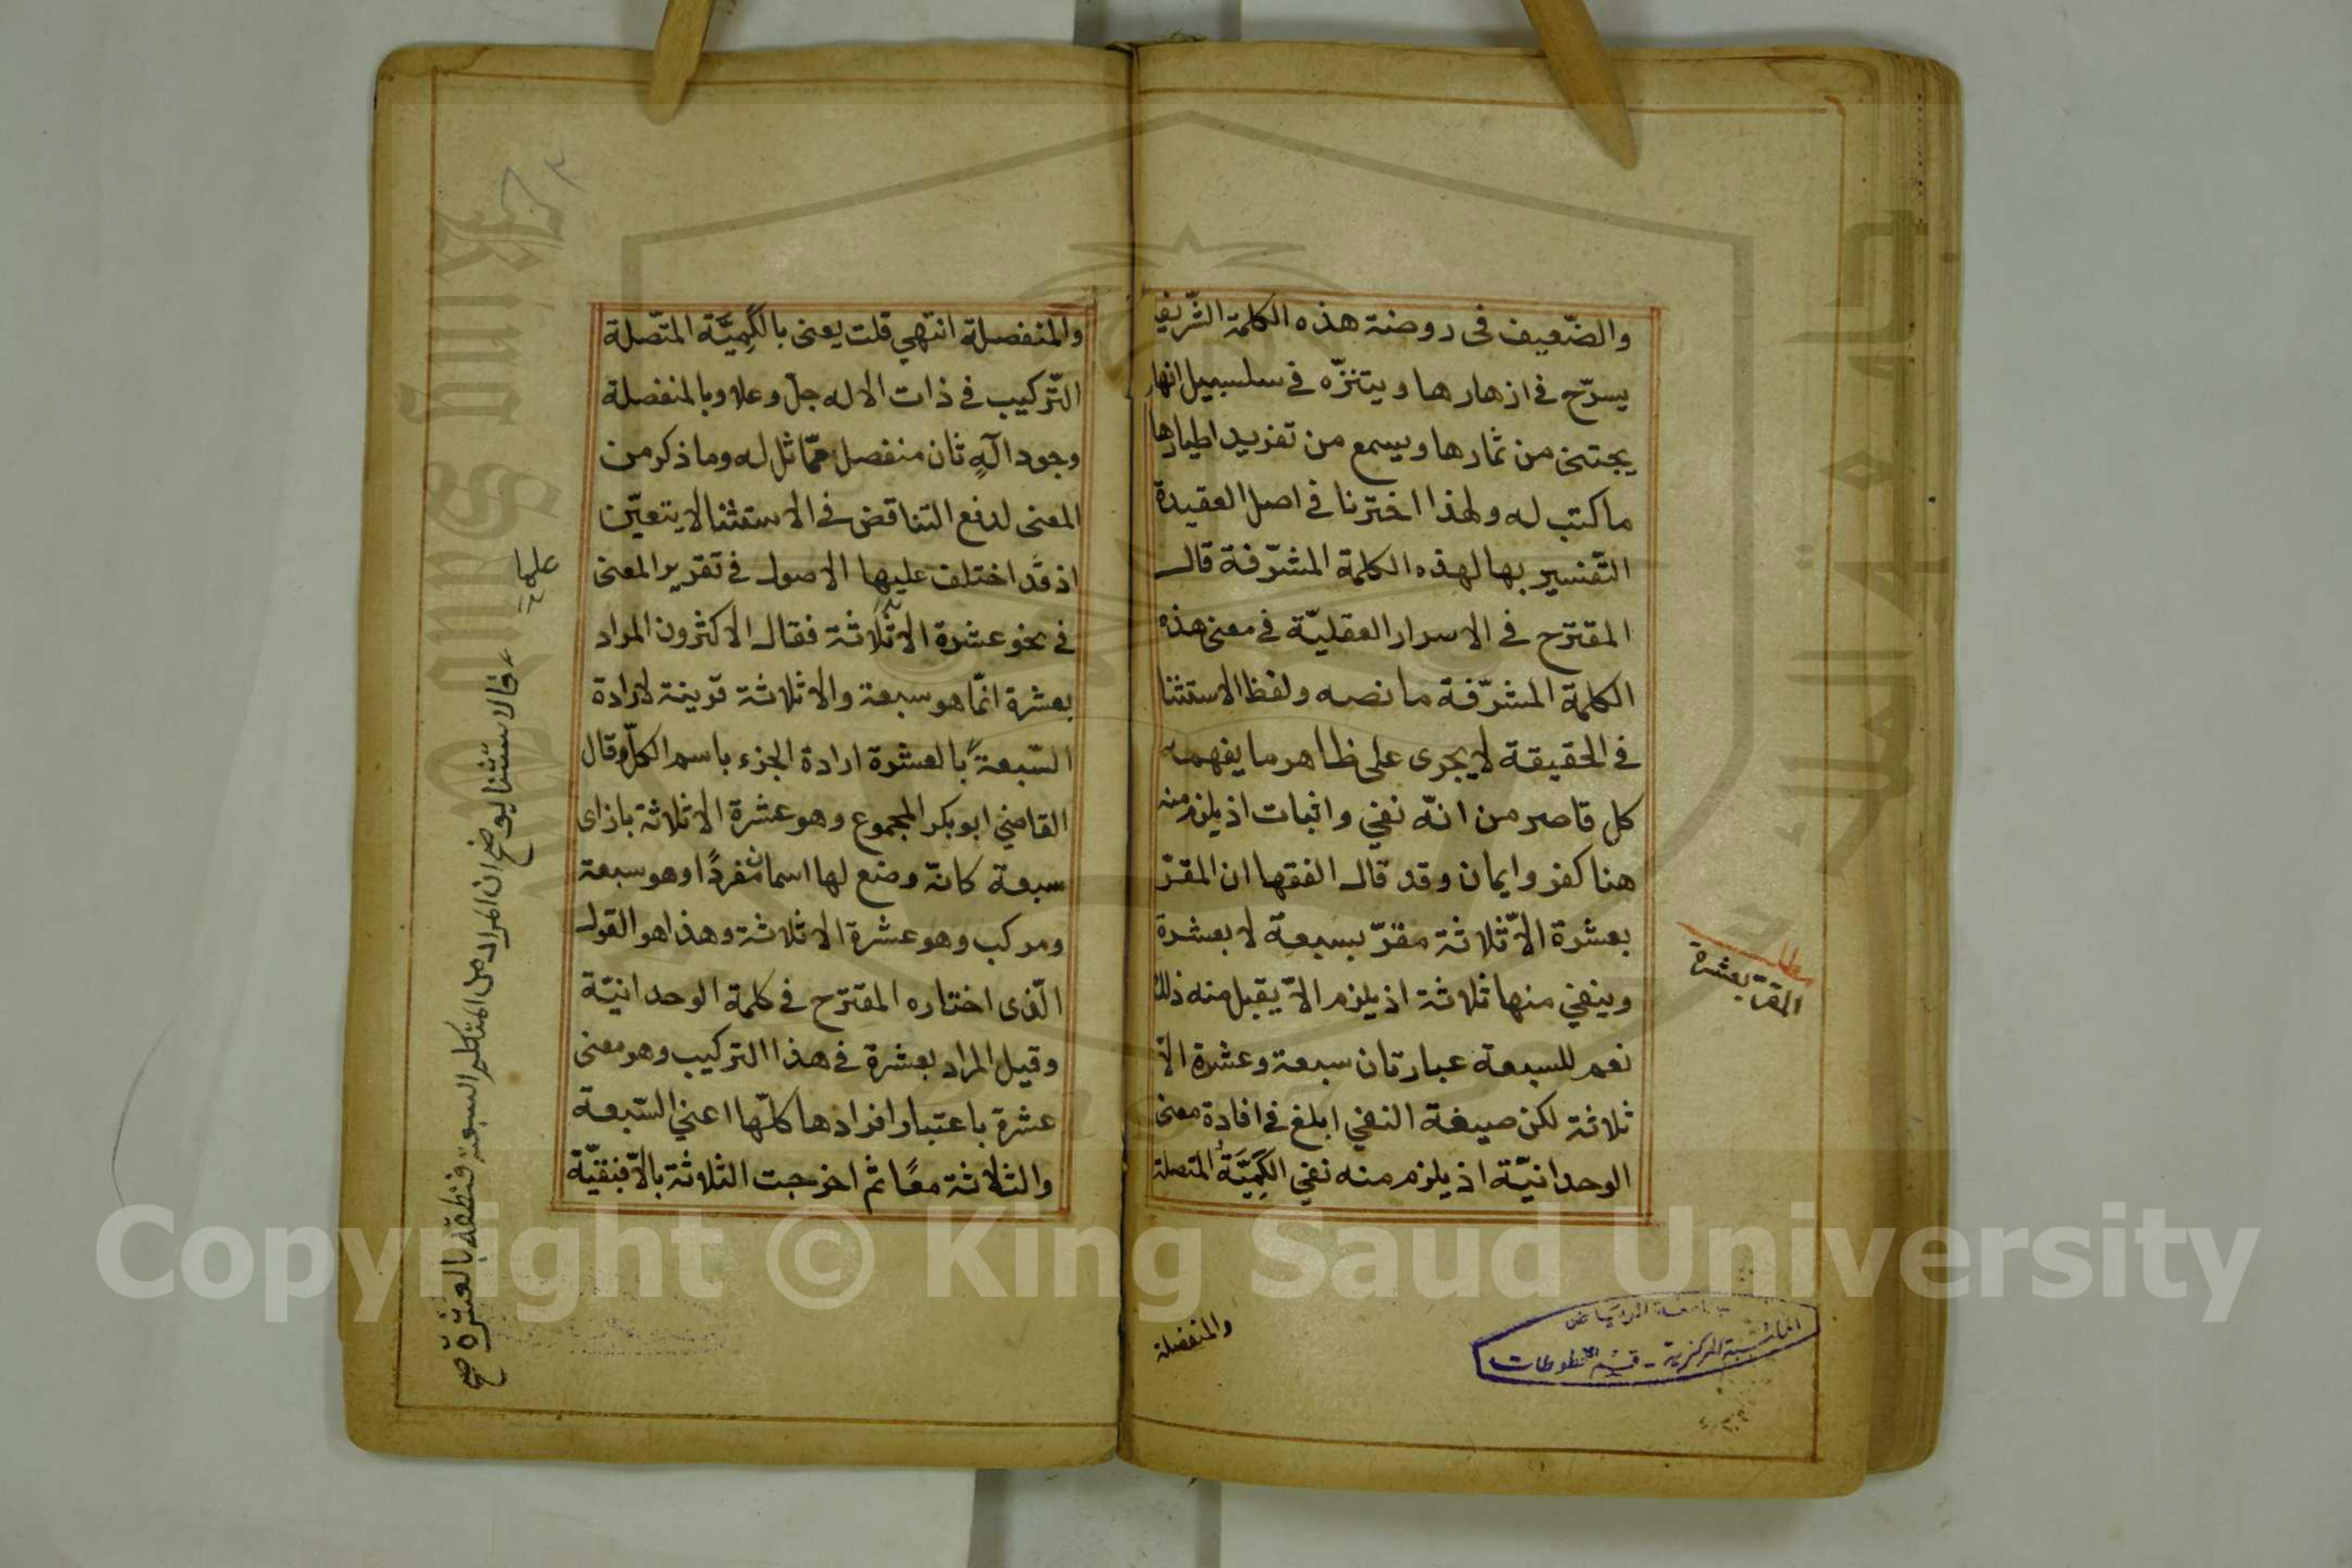 والضّعيف فى روضة هذه الكلمة الشّريفة
يسرّح في ازهارها ويتنزّه في سلسبيل انهار
يجتنى من ثمارها ويسمع من تغريد اطيارها
ما كتب له ولهذا اخترنا في اصل العقيدة
التّفسير بها لهذه الكلمة المشرّفة قال
المقترح في الاسرار العقليّة في معنى هذه
الكلمة المشرّفة ما نصه ولفظ الاستثنا
في الحقيقة لا يجرى على ظاهر ما يفهمه
كل قاصر من انّه نفي واثبات اذ يلزم منه
هنا كفر وايمان وقد قال الفقها ان المقرّ
بعشرة الاّ ثلاثة مقرّ بسبعة لا بعشرة
وينفي منها ثلاثة اذ يلزم الاّ يقبل منه ذلك
نعم للسبعة عبارتان سبعة وعشرة الاّ
ثلاثة لكن صيغة النفي ابلغ في افادة معنى
الوحدانيّة اذ يلزم منه نفي الكَمِيَّةُ المتصلة
والمنفصلة
المقر بعشرة
جامعة الرياض
المكتبة المركزية - قسم المخطوطات
والمنفصلة انتهي قلت يعنى بالكَمِيَّة المتّصلة
التّركيب في ذات الاله جلّ وعلا وبالمنفصلة
وجود آلهٍ ثان منفصل ممّاثل له وما ذكر من
المعنى لدفع التناقض في الاستثنا لا يتعيّن
اذ قد اختلف عليها الاصول في تقرير المعنى
في نحو عشرة الا ثلاثة فقال الاكثرون المراد
بعشرة انّما هو سبعة والا ثلاثة قرينة لارادة
السّبعة بالعشرة ارادة الجزء باسم الكلّ وقال
القاضي ابو بكر المجموع وهو عشرة الا ثلاثة بازاى
سبعة كانّه وضع لها اسمان مفردًا وهو سبعة
ومركب وهو عشرة الا ثلاثة وهذا هو القول
الّذى اختاره المقترح في كلمة الوحدانيّة
وقيل المراد بعشرة في هذا التركيب وهو معنى
عشرة باعتبار افرادها كلّها اعني السّبعة
والثلاثة معًا ثم اخرجت الثلاثة بالاّ فبقيّة
علما
فالاستثنا يوضح ان المراد من المتكلم السبعة فنطقه بالعشرة صح
٣
Copyright © King Saud University